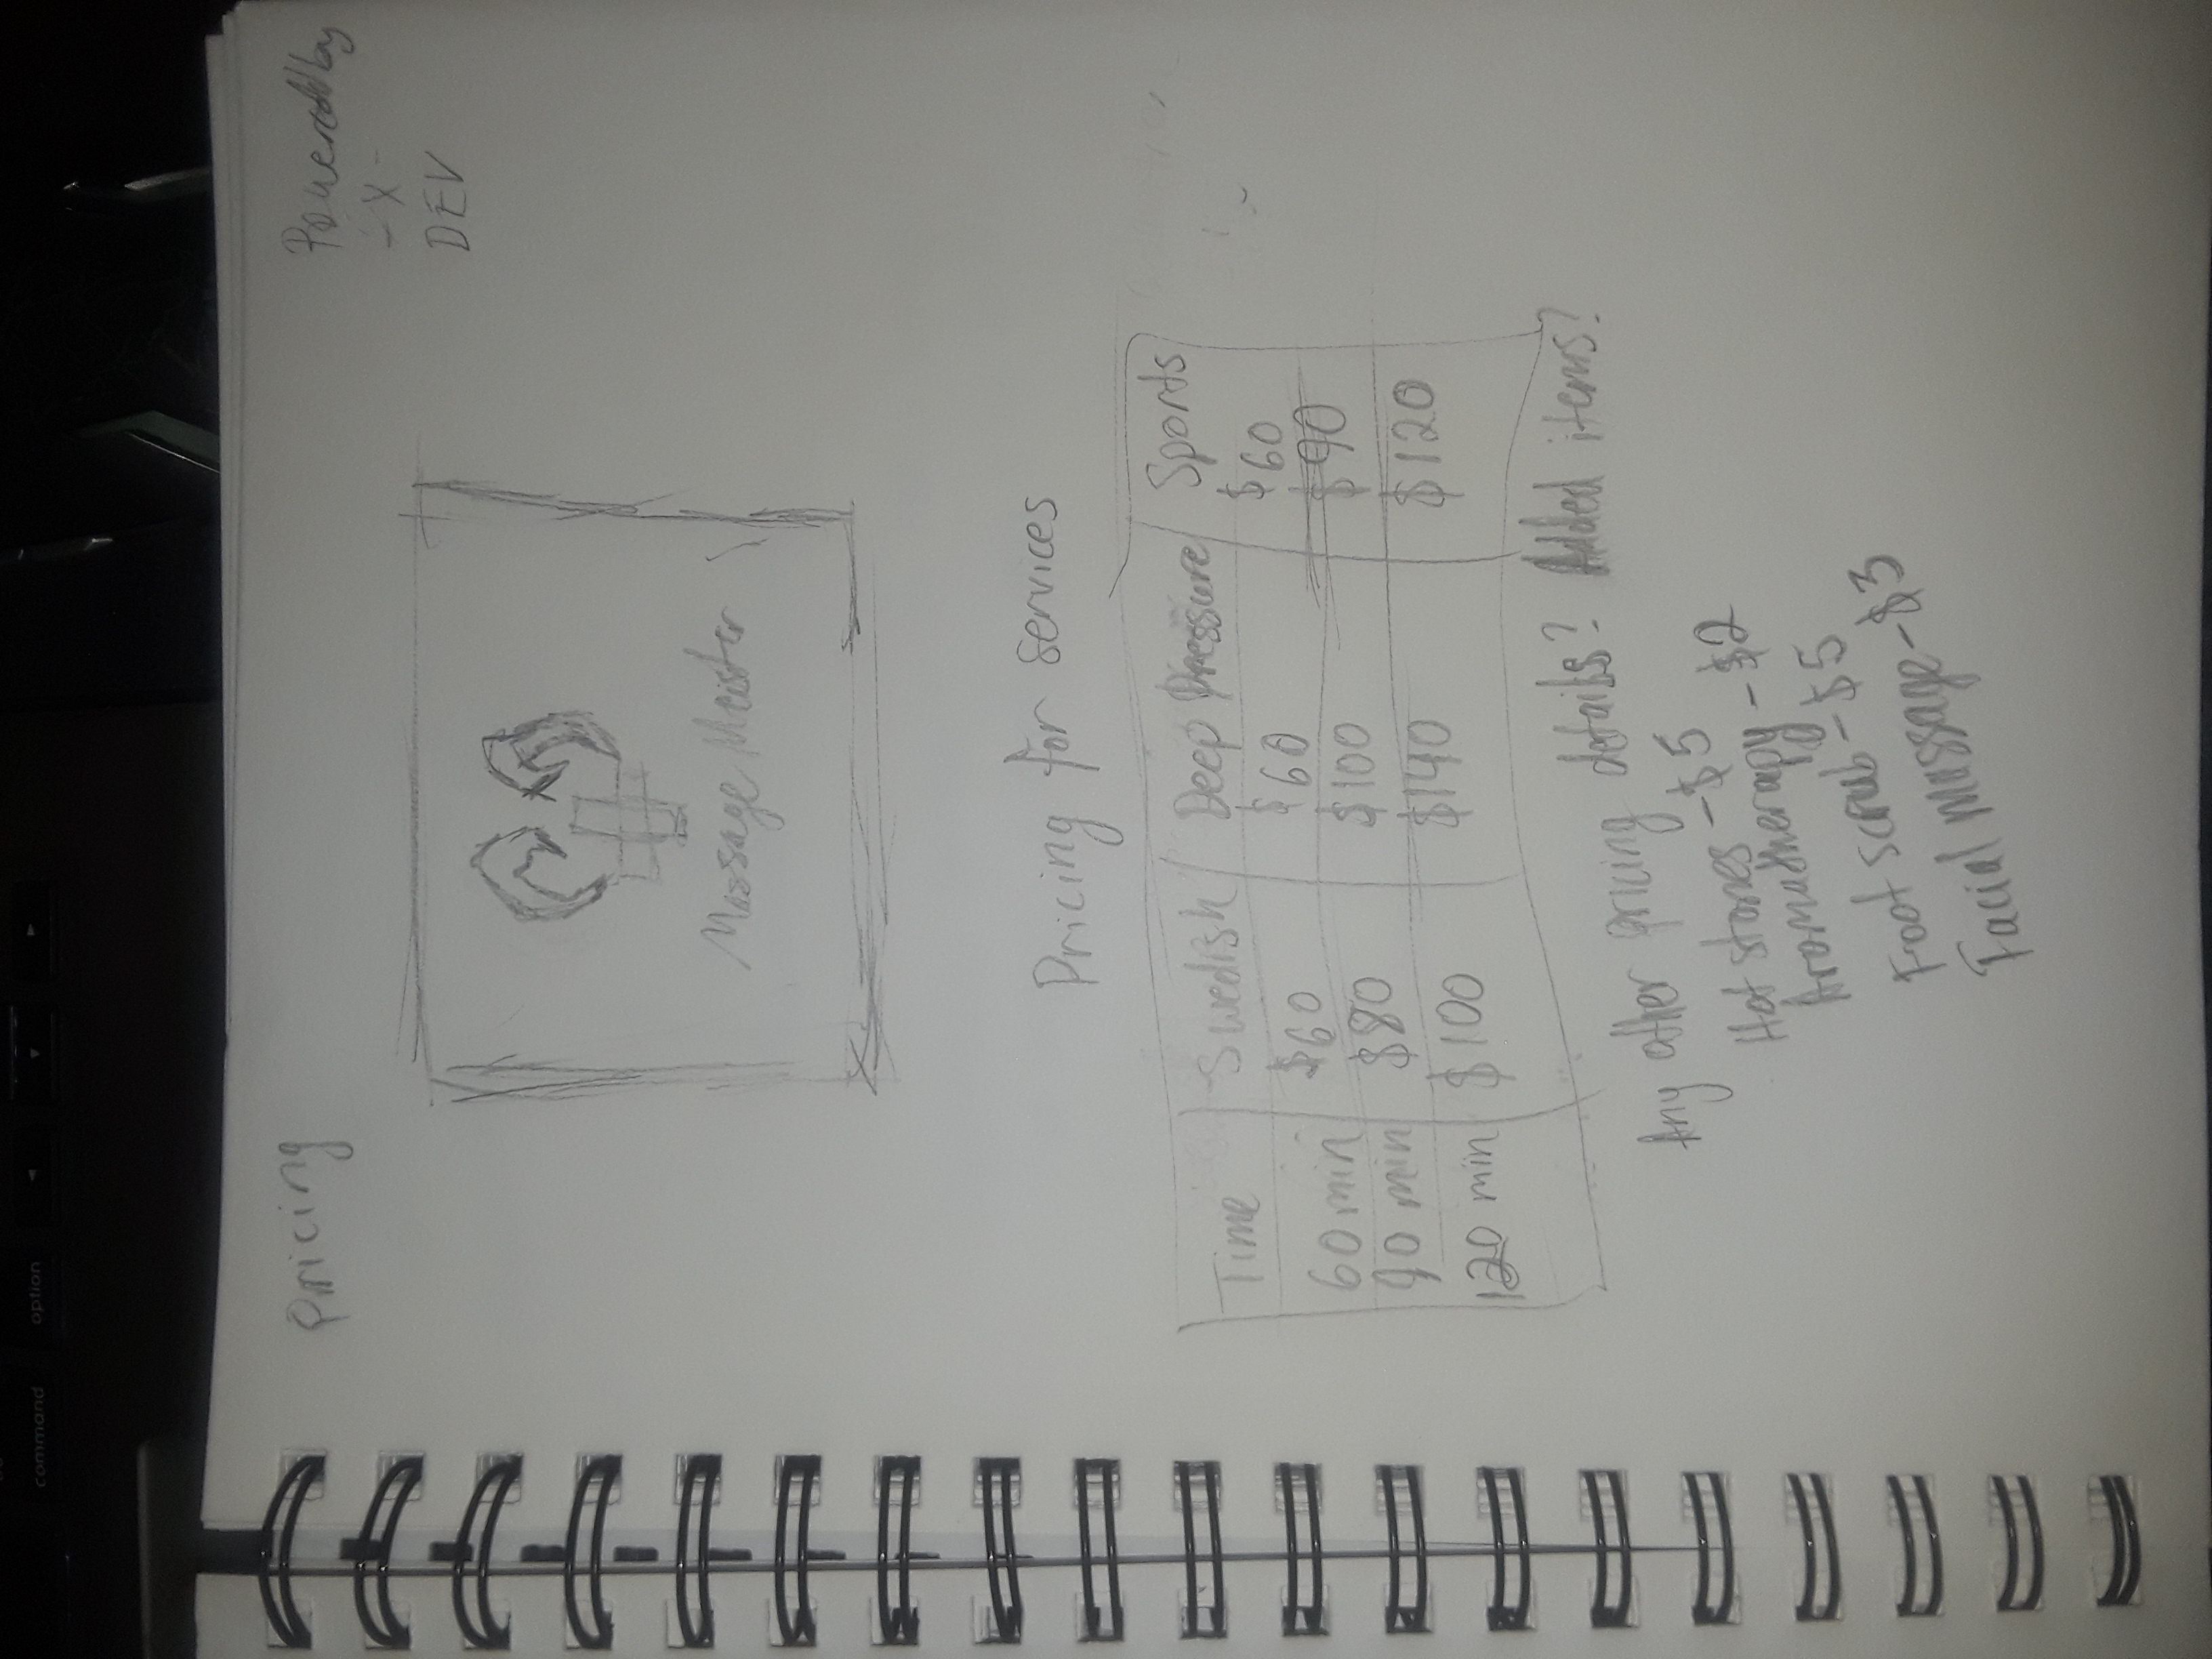 command option
Pricing
Powered by
- X -
DEV
Massage Meister
Pricing for services
Time Swedish Deep Pressure Sports
60 min $60 $60 $60
90 min $80 $100 $90
120 min $100 $140 $120
Any other pricing details? Added items?
Hot stones - $5
Aromatherapy - $2
Foot scrub - $5
Facial massage - $3